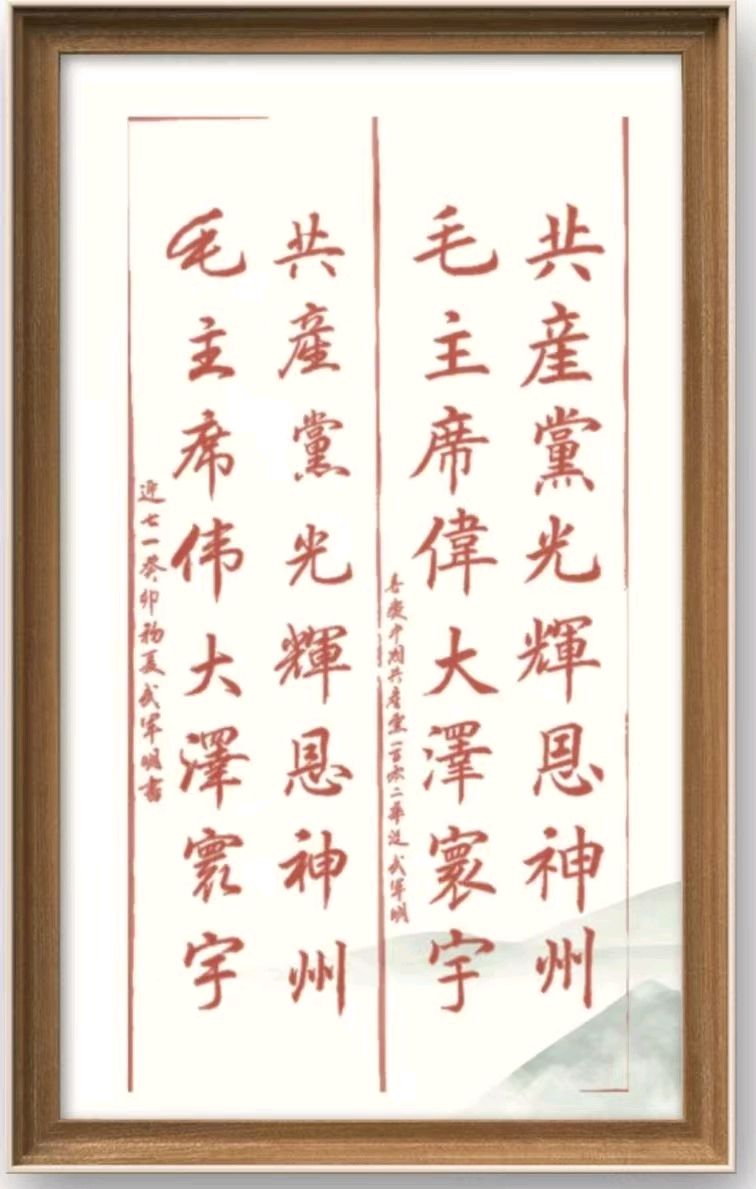 共產黨光輝恩神州
毛主席偉大澤寰宇
喜慶中國共產黨一百零二華诞 武軍明
共產黨光輝恩神州
毛主席伟大澤寰宇
迎七一癸卯初夏武軍明書